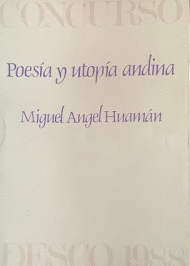 CONCURSO
Poesía y utopía andina
Miguel Angel Huamán
DESCO 1988